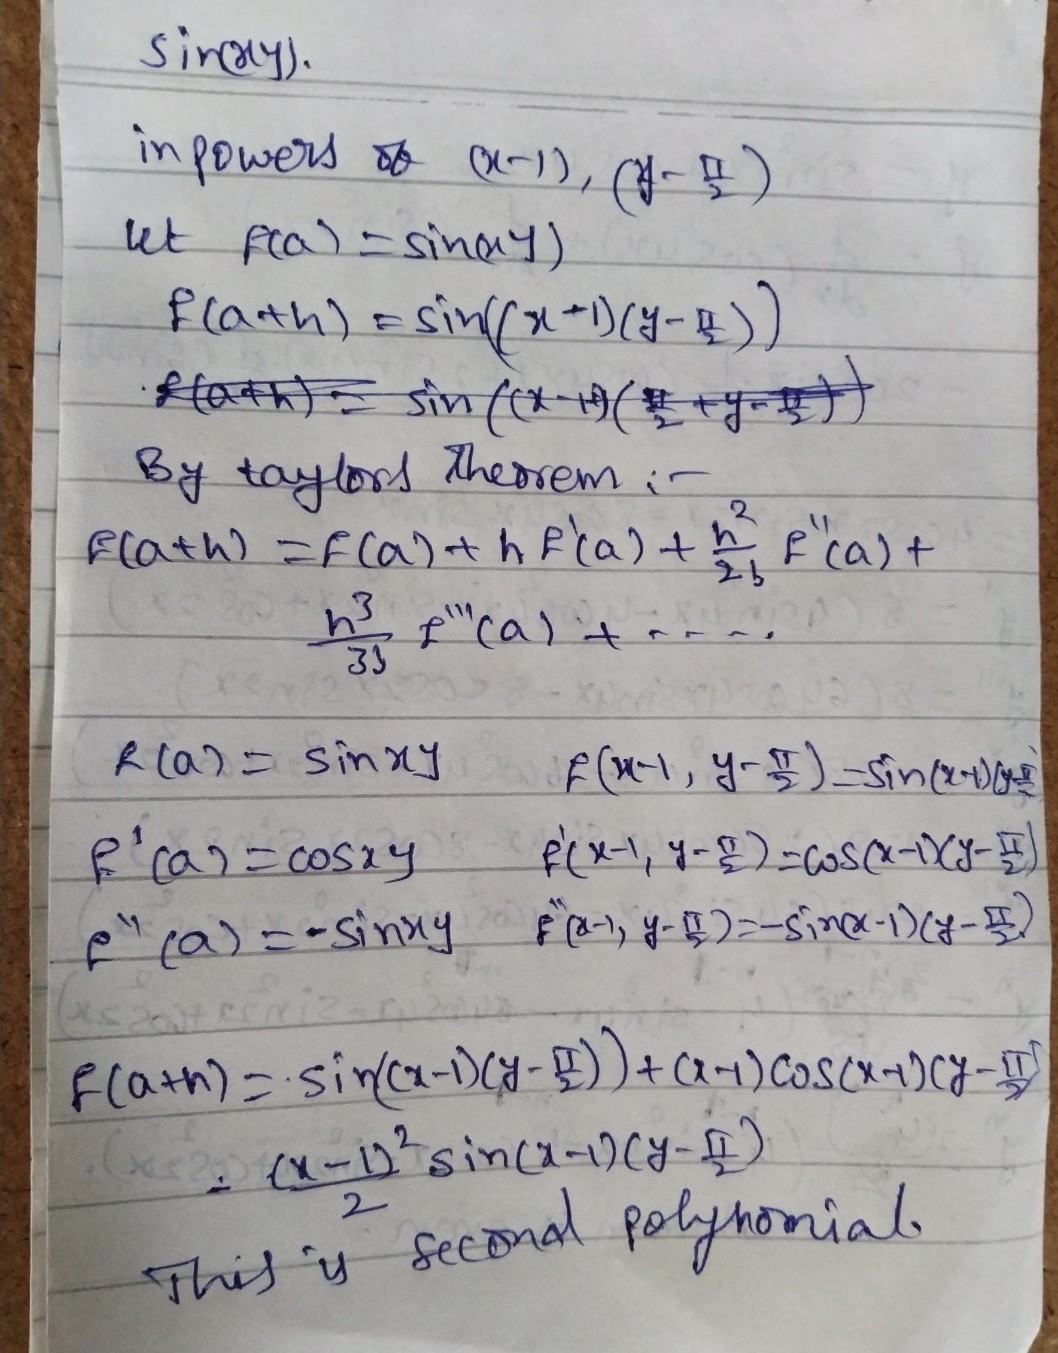 sin(xy).
in powers of (x-1), (y-π/2)
let f(a) = sin(xy)
f(a+h) = sin((x+1)(y-π/2))
f(a+h) = sin((x-1)(π/2+y-π/2))
By taylors Theorem :-
f(a+h) = f(a) + h f'(a) + h²/2! f''(a) +
h³/3! f'''(a) + -----.
f(a) = sinxy f(x-1, y-π/2) = sin(x-1)(y-π/2)
f'(a) = cosxy f'(x-1, y-π/2) = cos(x-1)(y-π/2)
f''(a) = -sinxy f''(x-1, y-π/2) = -sin(x-1)(y-π/2)
f(a+h) = sin((x-1)(y-π/2)) + (x-1) cos(x-1)(y-π/2)
- (x-1)²/2 sin(x-1)(y-π/2)
This is second polynomial